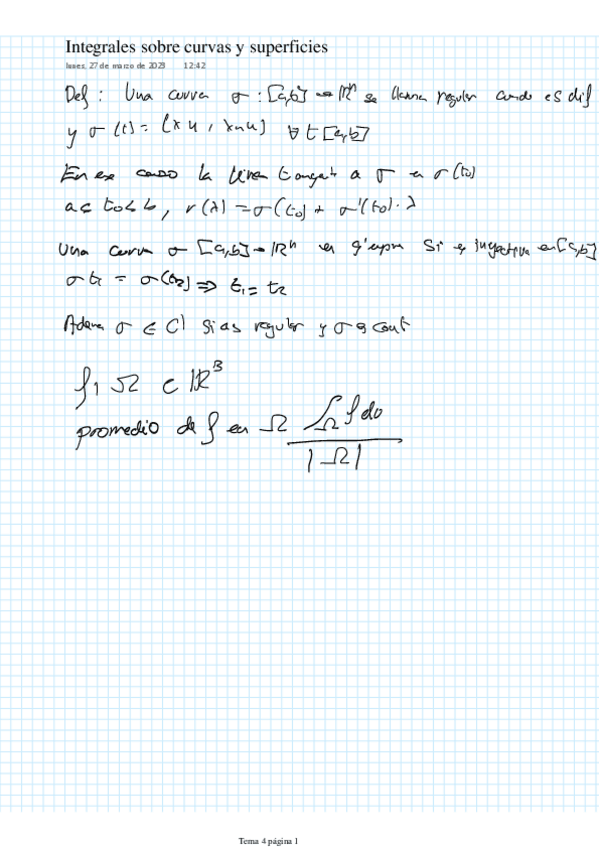 Integrales sobre curvas y superficies
lunes, 27 de marzo de 2023 12:42
Def: Una curva σ: [a,b] → ℝⁿ se llama regular cuando es dif
y σ(t) = ( ∀ t [a,b]
En ese caso la línea tangente a σ en σ(t0)
a ≤ t0 ≤ b, r(λ) = σ(t0) + σ'(t0)·λ
Una curva σ [a,b] → ℝⁿ es simple Si es inyectiva en [a,b]
σ t1 = σ(t2) ⇒ t1 = t2
Además σ ∈ C1 si es regular y σ es cont
f, Ω ⊂ ℝ³
promedio de f en Ω ∫Ω f dσ
|Ω|
Tema 4 página 1